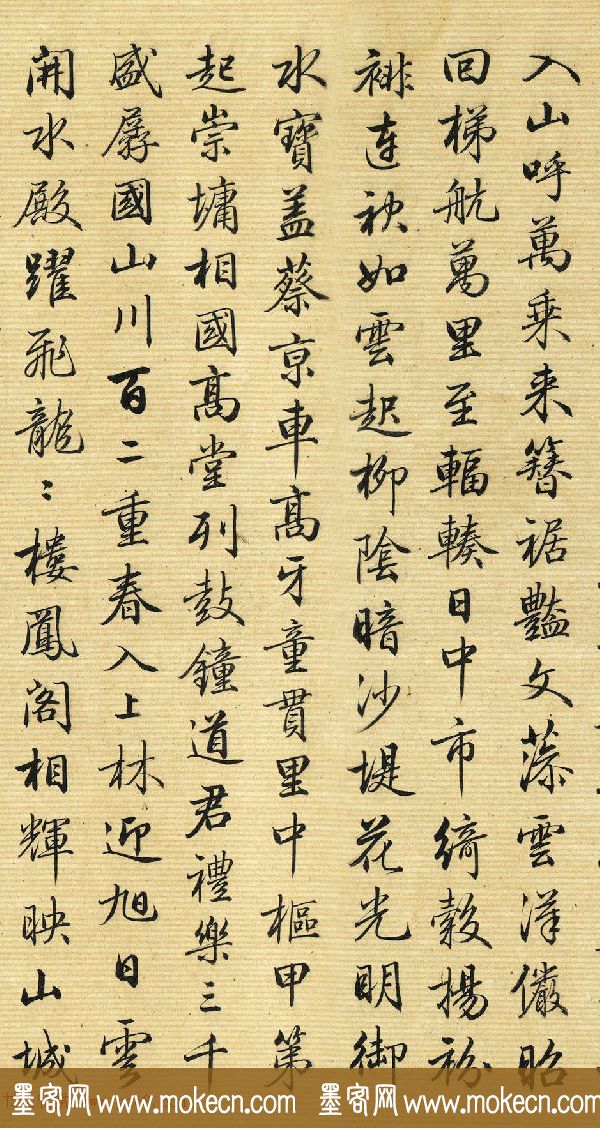 入山呼萬乗来簪裾豔文藻雲漢儼昭
回梯航萬里至輻輳日中市綺縠揚袽
褂連袂如雲起柳陰暗沙堤花光明御
水寶盖蔡京車高牙童貫里中樞甲第
起崇墉相國高堂列鼓鐘道君禮樂三千
盛孱國山川百二重春入上林迎旭日雲
開水殿躍飛龍〻樓鳳閣相輝映山城
墨客网 www.mokecn.com 墨客网 www.mokecn.com